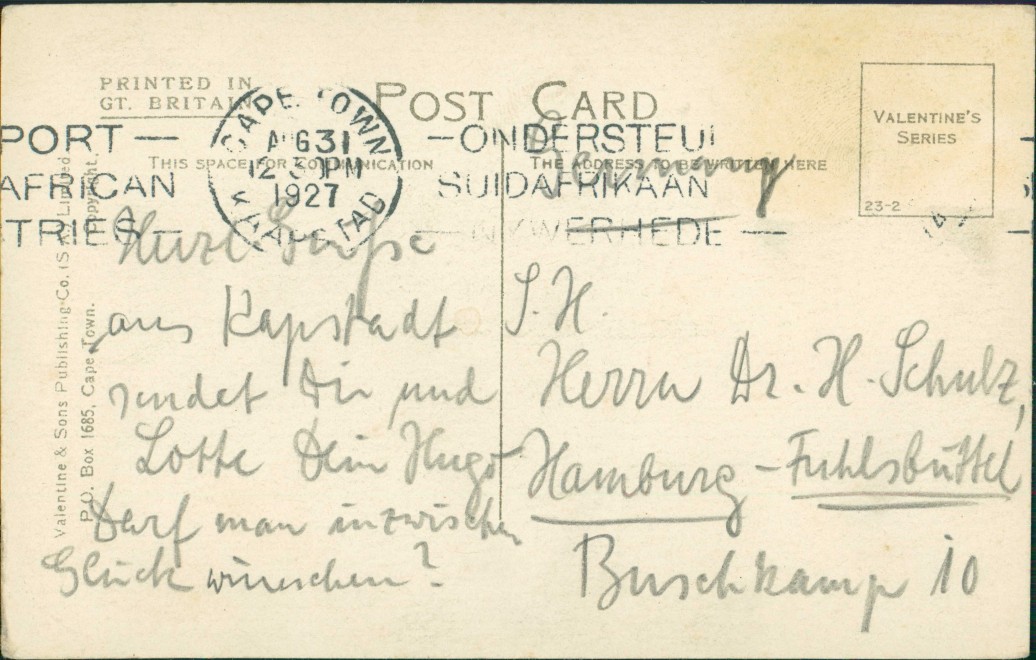 PRINTED IN
GT. BRITAIN
POST CARD
VALENTINE'S
SERIES
23-2
CAPE TOWN
AUG 31
12 30 PM
1927
KAAPSTAD
PORT —
AFRICAN
TRIES —
— ONDERSTEUN
SUIDAFRIKAANSE
— NYWERHEDE —
THIS SPACE FOR COMMUNICATION
THE ADDRESS TO BE WRITTEN HERE
Valentine & Sons Publishing Co. (S.A.) Limited
P.O. Box 1685, Cape Town. Copyright.
Herzl. Grüsse
aus Kapstadt
sendet Dir und
Lotte Dein Hugo
Darf man inzwischen
Glück wünschen?
Germany
S. H.
Herrn Dr. H. Schulz,
Hamburg - Fuhlsbüttel
Buschkamp 10